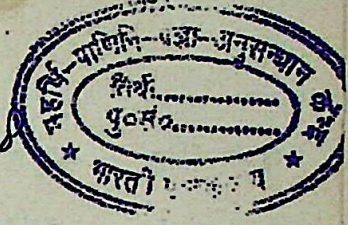 महर्षि-पाणिनि-प्रज्ञा-अनुसन्धान केन्द्र
तिथि.................
पु०सं०................
★ भारती ★